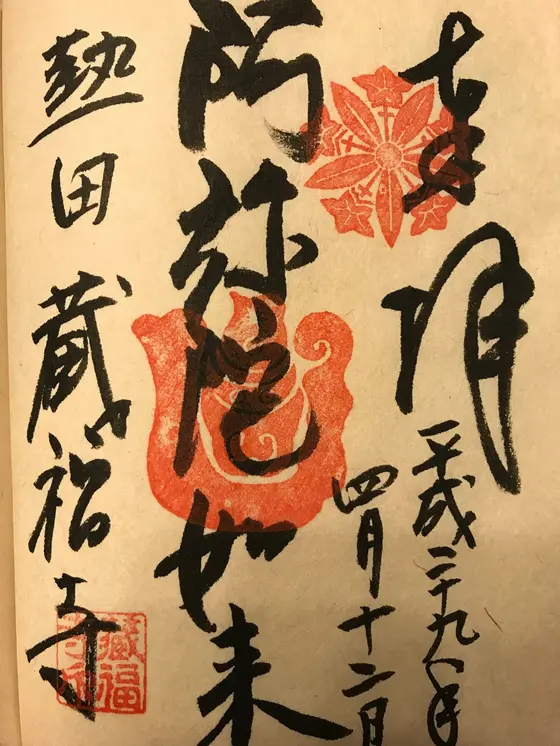 奉拝
平成二十九年
四月十二日
阿弥陀如来
熱田 蔵福寺
蔵福